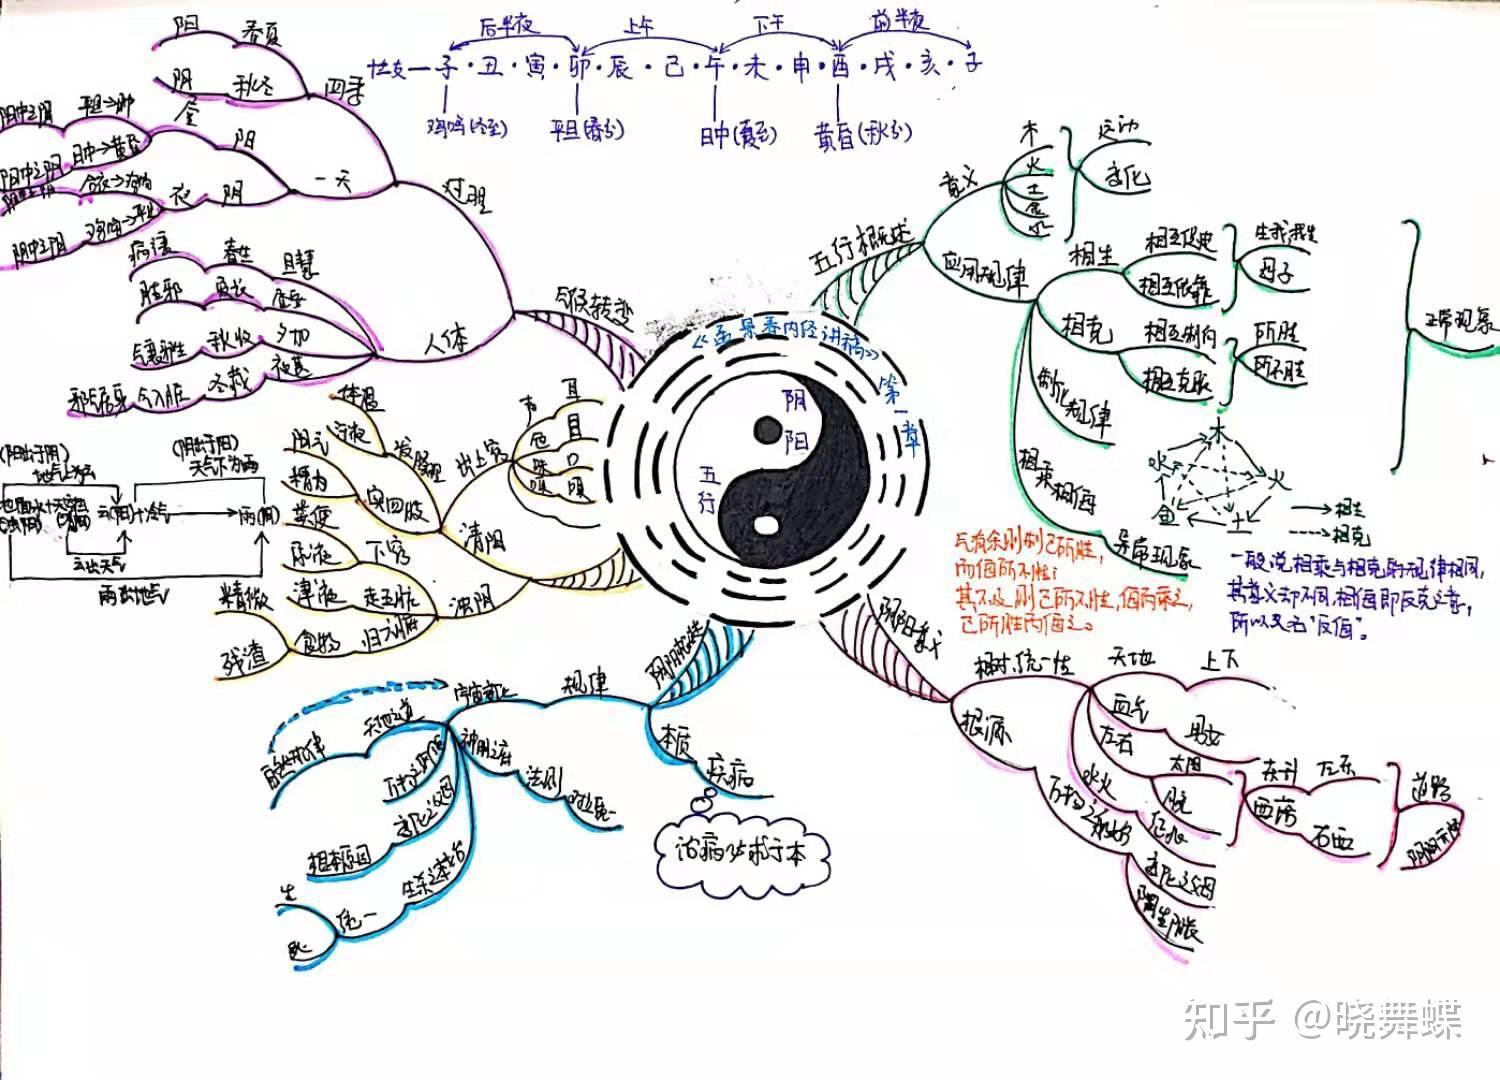 后半夜 上午 下午 前半夜
地支—子·丑·寅·卯·辰·巳·午·未·申·酉·戌·亥·子
鸡鸣(冬至) 平旦(春分) 日中(夏至) 黄昏(秋分)
《孟景春内经讲稿》
第一章
阴
阳
五
行
五行概述
意义
木
火
土
金
水
运动
变化
应用规律
相生
相互促进
相互依靠
生我我生
母子
相克
相互制约
相互克服
所胜
所不胜
制化规律
相乘相侮
正常现象
异常现象
木
火
土
金
水
→相生
相克
气有余则制己所胜,
而侮所不胜;
其不及则己所不胜,侮而乘之,
己所胜而侮之。
一般说相乘与相克的规律相同,
其意义却不同,相侮即反克之意,
所以又名"反侮"。
阴阳意义
相对统一性
天地
上下
血气
男女
左右
水火
太阳
东升
左东
西落
右西
道路
根源
万物之能始
变化之父母
阴阳概述
规律
宇宙变化
天地之道
自然规律
万物之纲纪
变化之父母
相互原因
生杀之本始
统一
生
死
神明之府
法则
本质
疾病
治病必求于本
清阳
出上窍
声
色
味
嗅
耳
目
口
发腠理
体温
汗液
实四肢
阳气
浊阴
下窍
粪便
尿液
走五脏
津液
归六腑
食物
精微
残渣
(阳出于阴)
(阴出于阳)
天气下为雨
云(阳)+冷气
雨(阴)
云出天气
雨出地气
气候转变
过程
四季
春夏
阳
秋冬
阴
一天
阳
阴
夜
日中→黄昏
阳中之阴
阴中之阴
人体
旦慧
春生
夏长
夕加
秋收
夜甚
冬藏
胜邪
知乎 @晓舞蝶